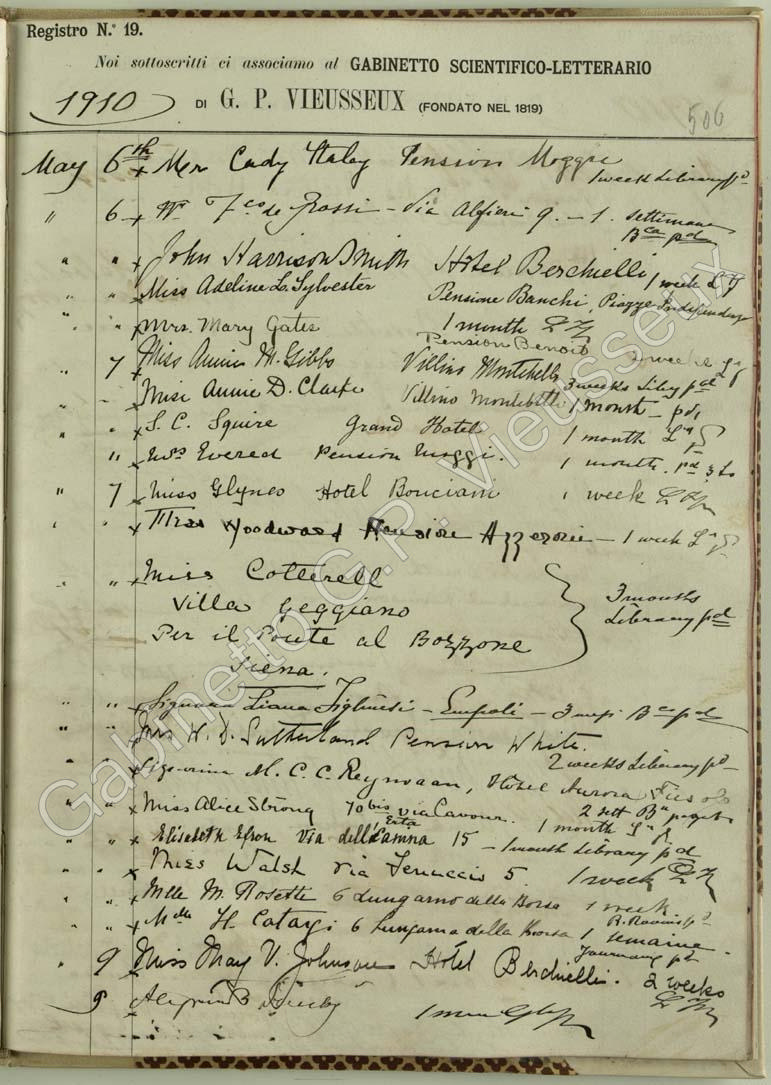 Registro N.° 19.
Noi sottoscritti ci associamo al GABINETTO SCIENTIFICO-LETTERARIO
1910 DI G. P. VIEUSSEUX (FONDATO NEL 1819)
506
May 6th Mrs Cady Staley Pension Moggi
1 week Library pd
" 6 de Rossi - Via Alfieri 9. - 1. settimana
Bca pd
" " John Harrison Smith Hôtel Berchielli 1 week
" " Miss Adeline L. Sylvester Pensione Banchi, Piazza Indipendenza
" " Mrs. Mary Gates 1 month
Pension Benoit 2 weeks
" 7 Miss Annie M. Gibbs Villino Montebello 3 weeks Liby pd
Miss Annie D. Clarke Villino Montebello 1 month - pd
" S. C. Squire Grand Hotel 1 month
" Evered Pension Moggi. 1 month. pd
" 7 Miss Glynes Hotel Bonciani 1 week
" " Miss Woodward Pension - 1 week
" " Miss Cotterell
Villa Geggiano
Per il Ponte al Bozzone
Siena.
3 months
Library pd
" " Signora Liana - Empoli - 3 mesi Bca pd
" " Mrs W. D. Sutherland Pension White.
2 weeks Library pd
" " Signorina M. C. C. Reynvaan, Hôtel Aurora Fiesole
2 sett Ba pagato
" " Miss Alice Strong 70 bis via Cavour. 1 month
" " Elisabeth Via dell'Erta Canina 15 - 1 month Library pd
" " Miss Walsh via Ferruccio 5. 1 week
" " Mlle M. Rosette 6 Lungarno della Borsa 1 week
" " Mlle H. 6 Lungarno della Borsa 1 semaine
" 9 Miss May V. Johnson Hôtel Berchielli. 2 weeks
9
Gabinetto G.P. Vieusseux